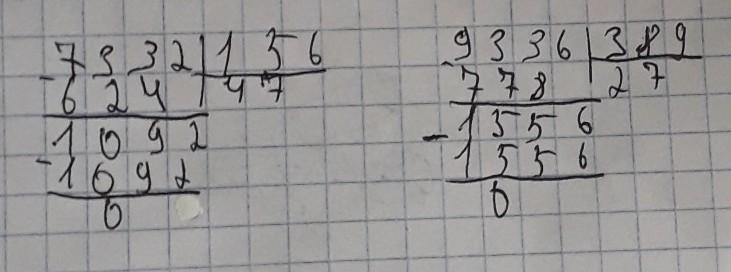 7332 156
- 624 47
1092
- 1092
0
9336 389
- 778 27
1556
- 1556
0